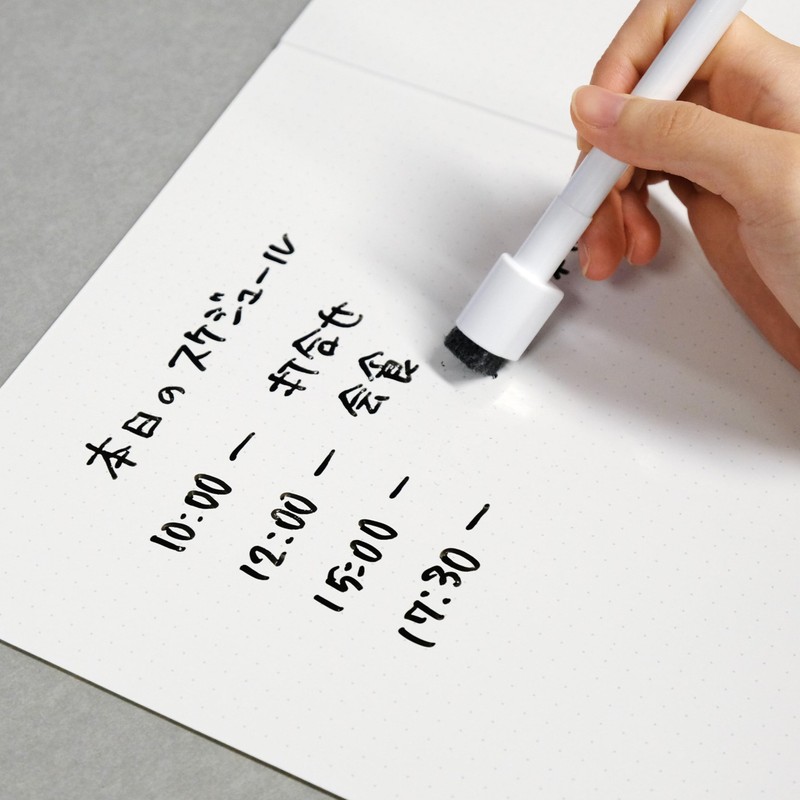 本日のスケジュール
10:00 ー 打合せ
12:00 ー 会食
15:00 ー
17:30 ー